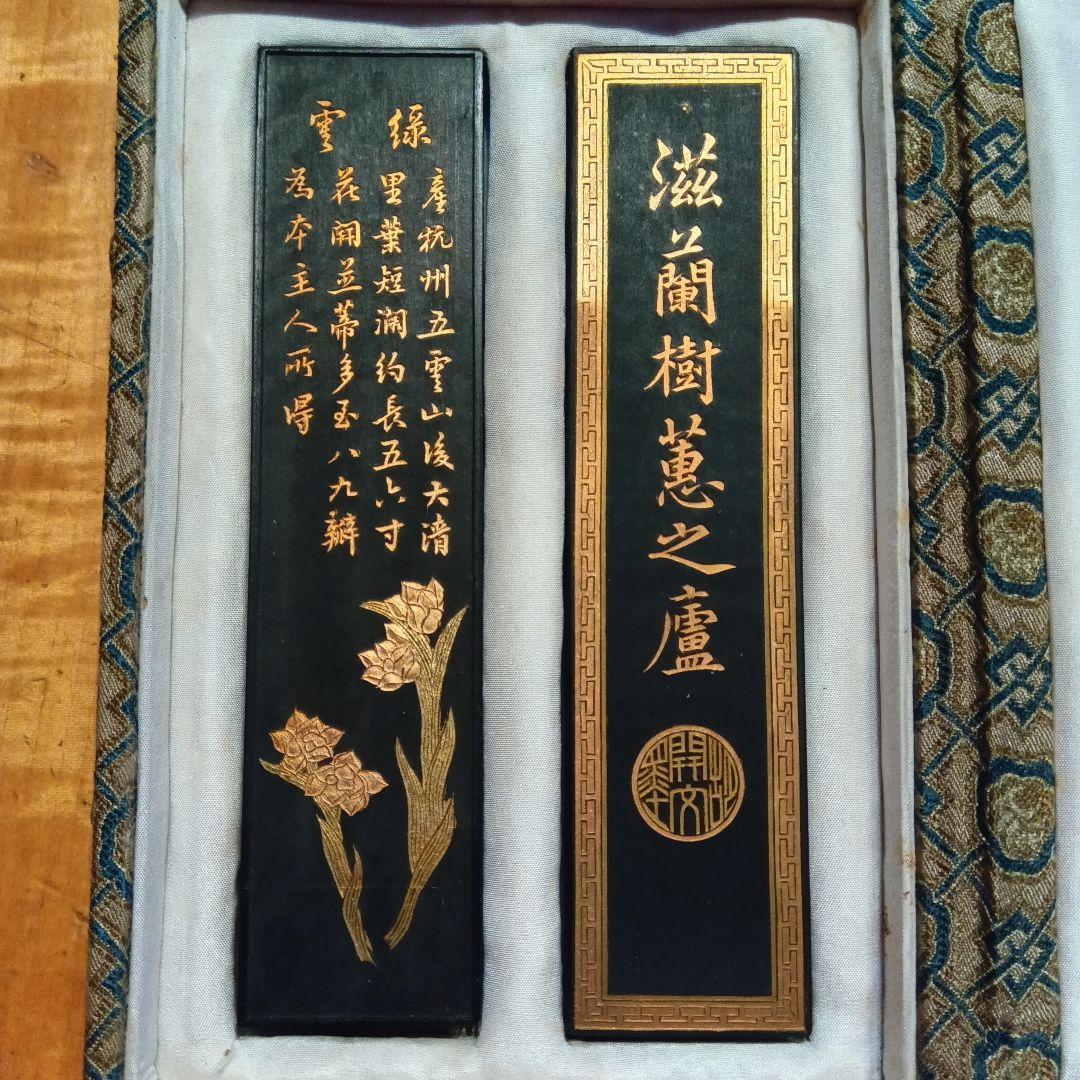 滋蘭樹蕙之廬
胡開文
綠雲
產杭州五雲山後大清
里葉短濶約長五六寸
花開並蒂多至八九瓣
為本主人所得